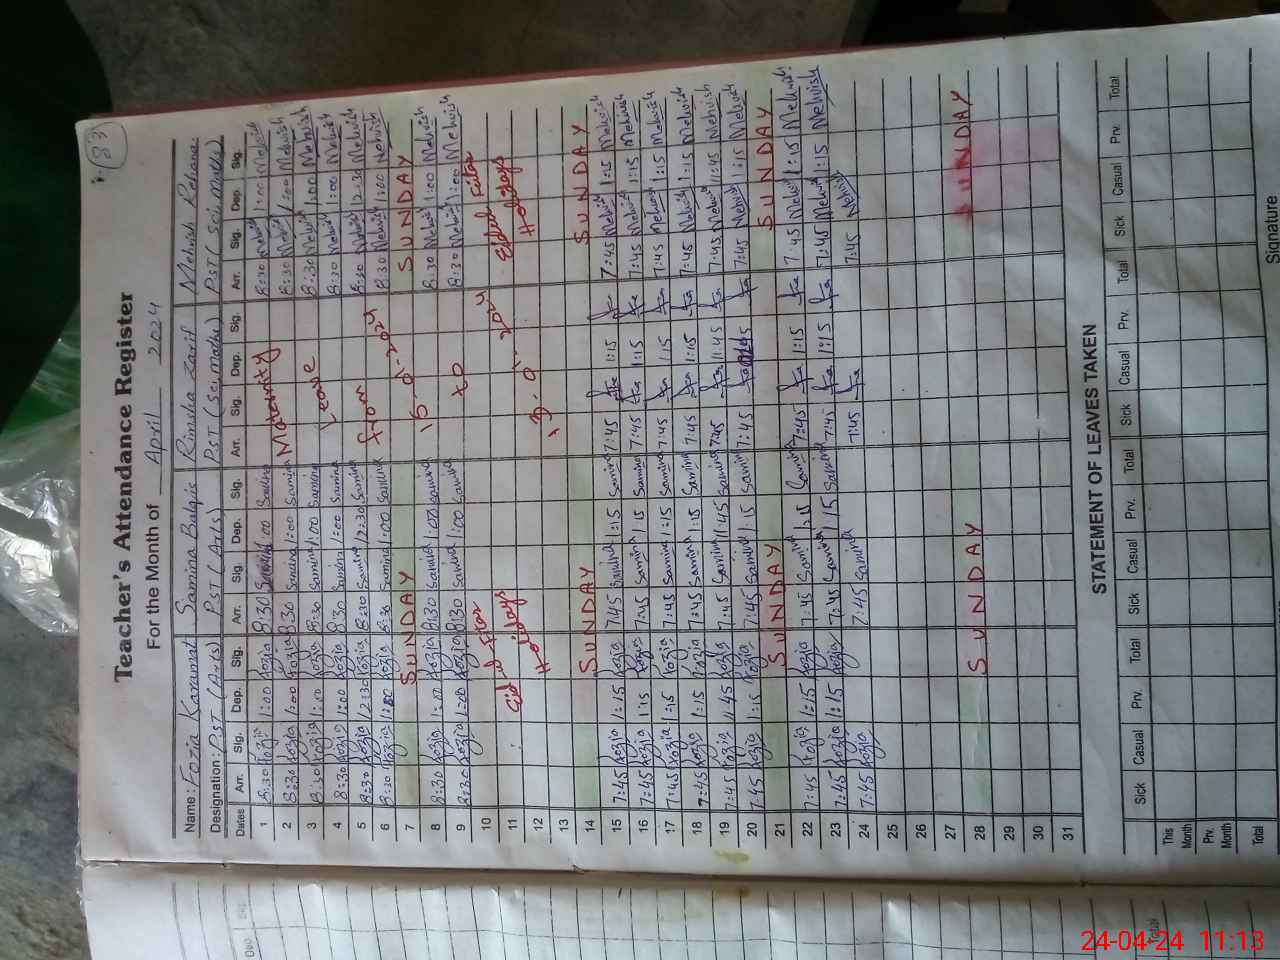 83
Teacher's Attendance Register
For the Month of April 2024
Name: Fozia Karamat Samina Balqis Rimsha Zarif Mehvish Rehana
Designation: PST (Arts) PST (Arts) PST (sci, maths) PST (sci, maths)
Dates Arr. Sig. Dep. Sig. Arr. Sig. Dep. Sig. Arr. Sig. Dep. Sig. Arr. Sig. Dep. Sig.
1 8:30 Fozia 1:00 Fozia 8:30 Samina 1:00 Samina 8:30 Mehvish 1:00 Mehvish
2 8:30 Fozia 1:00 Fozia 8:30 Samina 1:00 Samina Maternity 8:30 Mehvish 1:00 Mehvish
3 8:30 Fozia 1:00 Fozia 8:30 Samina 1:00 Samina Leave 8:30 Mehvish 1:00 Mehvish
4 8:30 Fozia 1:00 Fozia 8:30 Samina 1:00 Samina 8:30 Mehvish 1:00 Mehvish
5 8:30 Fozia 12:30 Fozia 8:30 Samina 12:30 Samina from 8:30 Mehvish 12:30 Mehvish
6 8:30 Fozia 1:00 Fozia 8:30 Samina 1:00 Samina 8:30 Mehvish 1:00 Mehvish
7 SUNDAY SUNDAY
8 8:30 Fozia 1:00 Fozia 8:30 Samina 1:00 Samina 8:30 Mehvish 1:00 Mehvish
9 8:30 Fozia 1:00 Fozia 8:30 Samina 1:00 Samina to 8:30 Mehvish 1:00 Mehvish
10 Eid ul Fitar Eidul Fitar
11 Holidays Holidays
12
13
14 SUNDAY SUNDAY
15 7:45 Fozia 1:15 Fozia 7:45 Samina 1:15 Samina 7:45 1:15 7:45 Mehvish 1:15 Mehvish
16 7:45 Fozia 1:15 Fozia 7:45 Samina 1:15 Samina 7:45 1:15 7:45 Mehvish 1:15 Mehvish
17 7:45 Fozia 1:15 Fozia 7:45 Samina 1:15 Samina 7:45 1:15 7:45 Mehvish 1:15 Mehvish
18 7:45 Fozia 1:15 Fozia 7:45 Samina 1:15 Samina 7:45 1:15 7:45 Mehvish 1:15 Mehvish
19 7:45 Fozia 11:45 Fozia 7:45 Samina 11:45 Samina 7:45 11:45 7:45 Mehvish 11:45 Mehvish
20 7:45 Fozia 1:15 Fozia 7:45 Samina 1:15 Samina 7:45 7:45 Mehvish 1:15 Mehvish
21 SUNDAY SUNDAY
22 7:45 Fozia 1:15 Fozia 7:45 Samina 1:15 Samina 7:45 1:15 7:45 Mehvish 1:15 Mehvish
23 7:45 Fozia 1:15 Fozia 7:45 Samina 1:15 Samina 7:45 1:15 7:45 Mehvish 1:15 Mehvish
24 7:45 Fozia 7:45 Samina 7:45 7:45 Mehvish
25
26
27
28 SUNDAY SUNDAY
29
30
31
STATEMENT OF LEAVES TAKEN
Sick Casual Prv. Total Sick Casual Prv. Total Sick Casual Prv. Total Sick Casual Prv. Total
This Month
Prv. Month
Total
Signature
Total
24-04-24 11:13